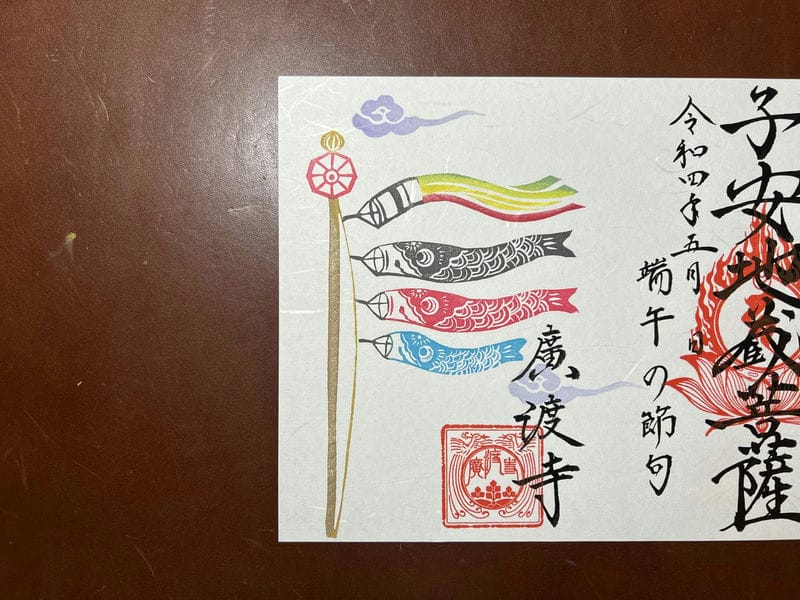 子安地蔵菩薩
令和四年五月 日
端午の節句
廣渡寺
廣渡寺